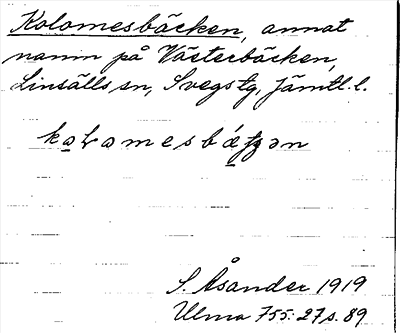 Kolomesbäcken, annat
namn på Västerbäcken,
Linsälls sn, Svegs tg, Jämtl. l.
S. Åsander 1919
Ulma 755: 27 s. 89